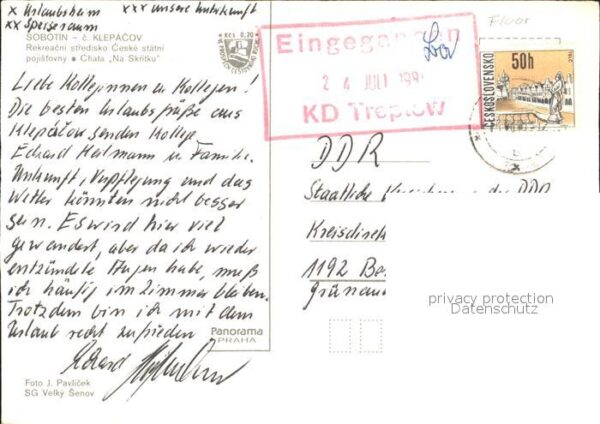 x Urlaubsheim xxx unsere Unterkunft
xx Speiseraum
SOBOTIN – č. KLEPÁČOV
Rekreační středisko České státní
pojišťovny • Chata „Na Skřítku"
Kčs 0,20
Liebe Kolleginnen u. Kollegen!
Die besten Urlaubsgrüße aus
Klepáčov senden Kollege
Eckard u. Familie.
Unkunft, Verpflegung und das
Wetter könnten nicht besser
sein. Es wird hier viel
gewandert, aber da ich wieder
entzündete Augen habe, muß
ich häufig im Zimmer bleiben.
Trotzdem bin ich mit dem
Urlaub recht zufrieden
Panorama
PRAHA
Foto J. Pavlíček
SG Velký Šenov
Eingegangen
2 4 JULI 198
KD Treptow
Floor
50h
ČESKOSLOVENSKO
DDR
Staatliche der DDR
Kreisdirek
1192 Be
Grünau
privacy protection
Datenschutz